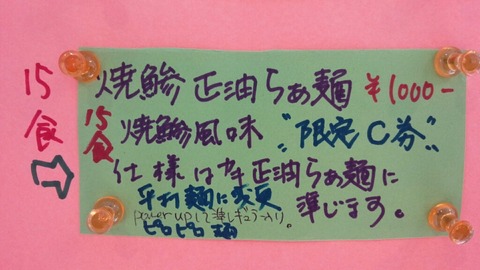 15食
焼鯵 正油らぁ麺 ¥1000-
15食
焼鯵風味 “限定C券”
仕様はカキ正油らぁ麺に
準じます。
平打麺に変更
power upして準レギュラー
ピロピロ麺